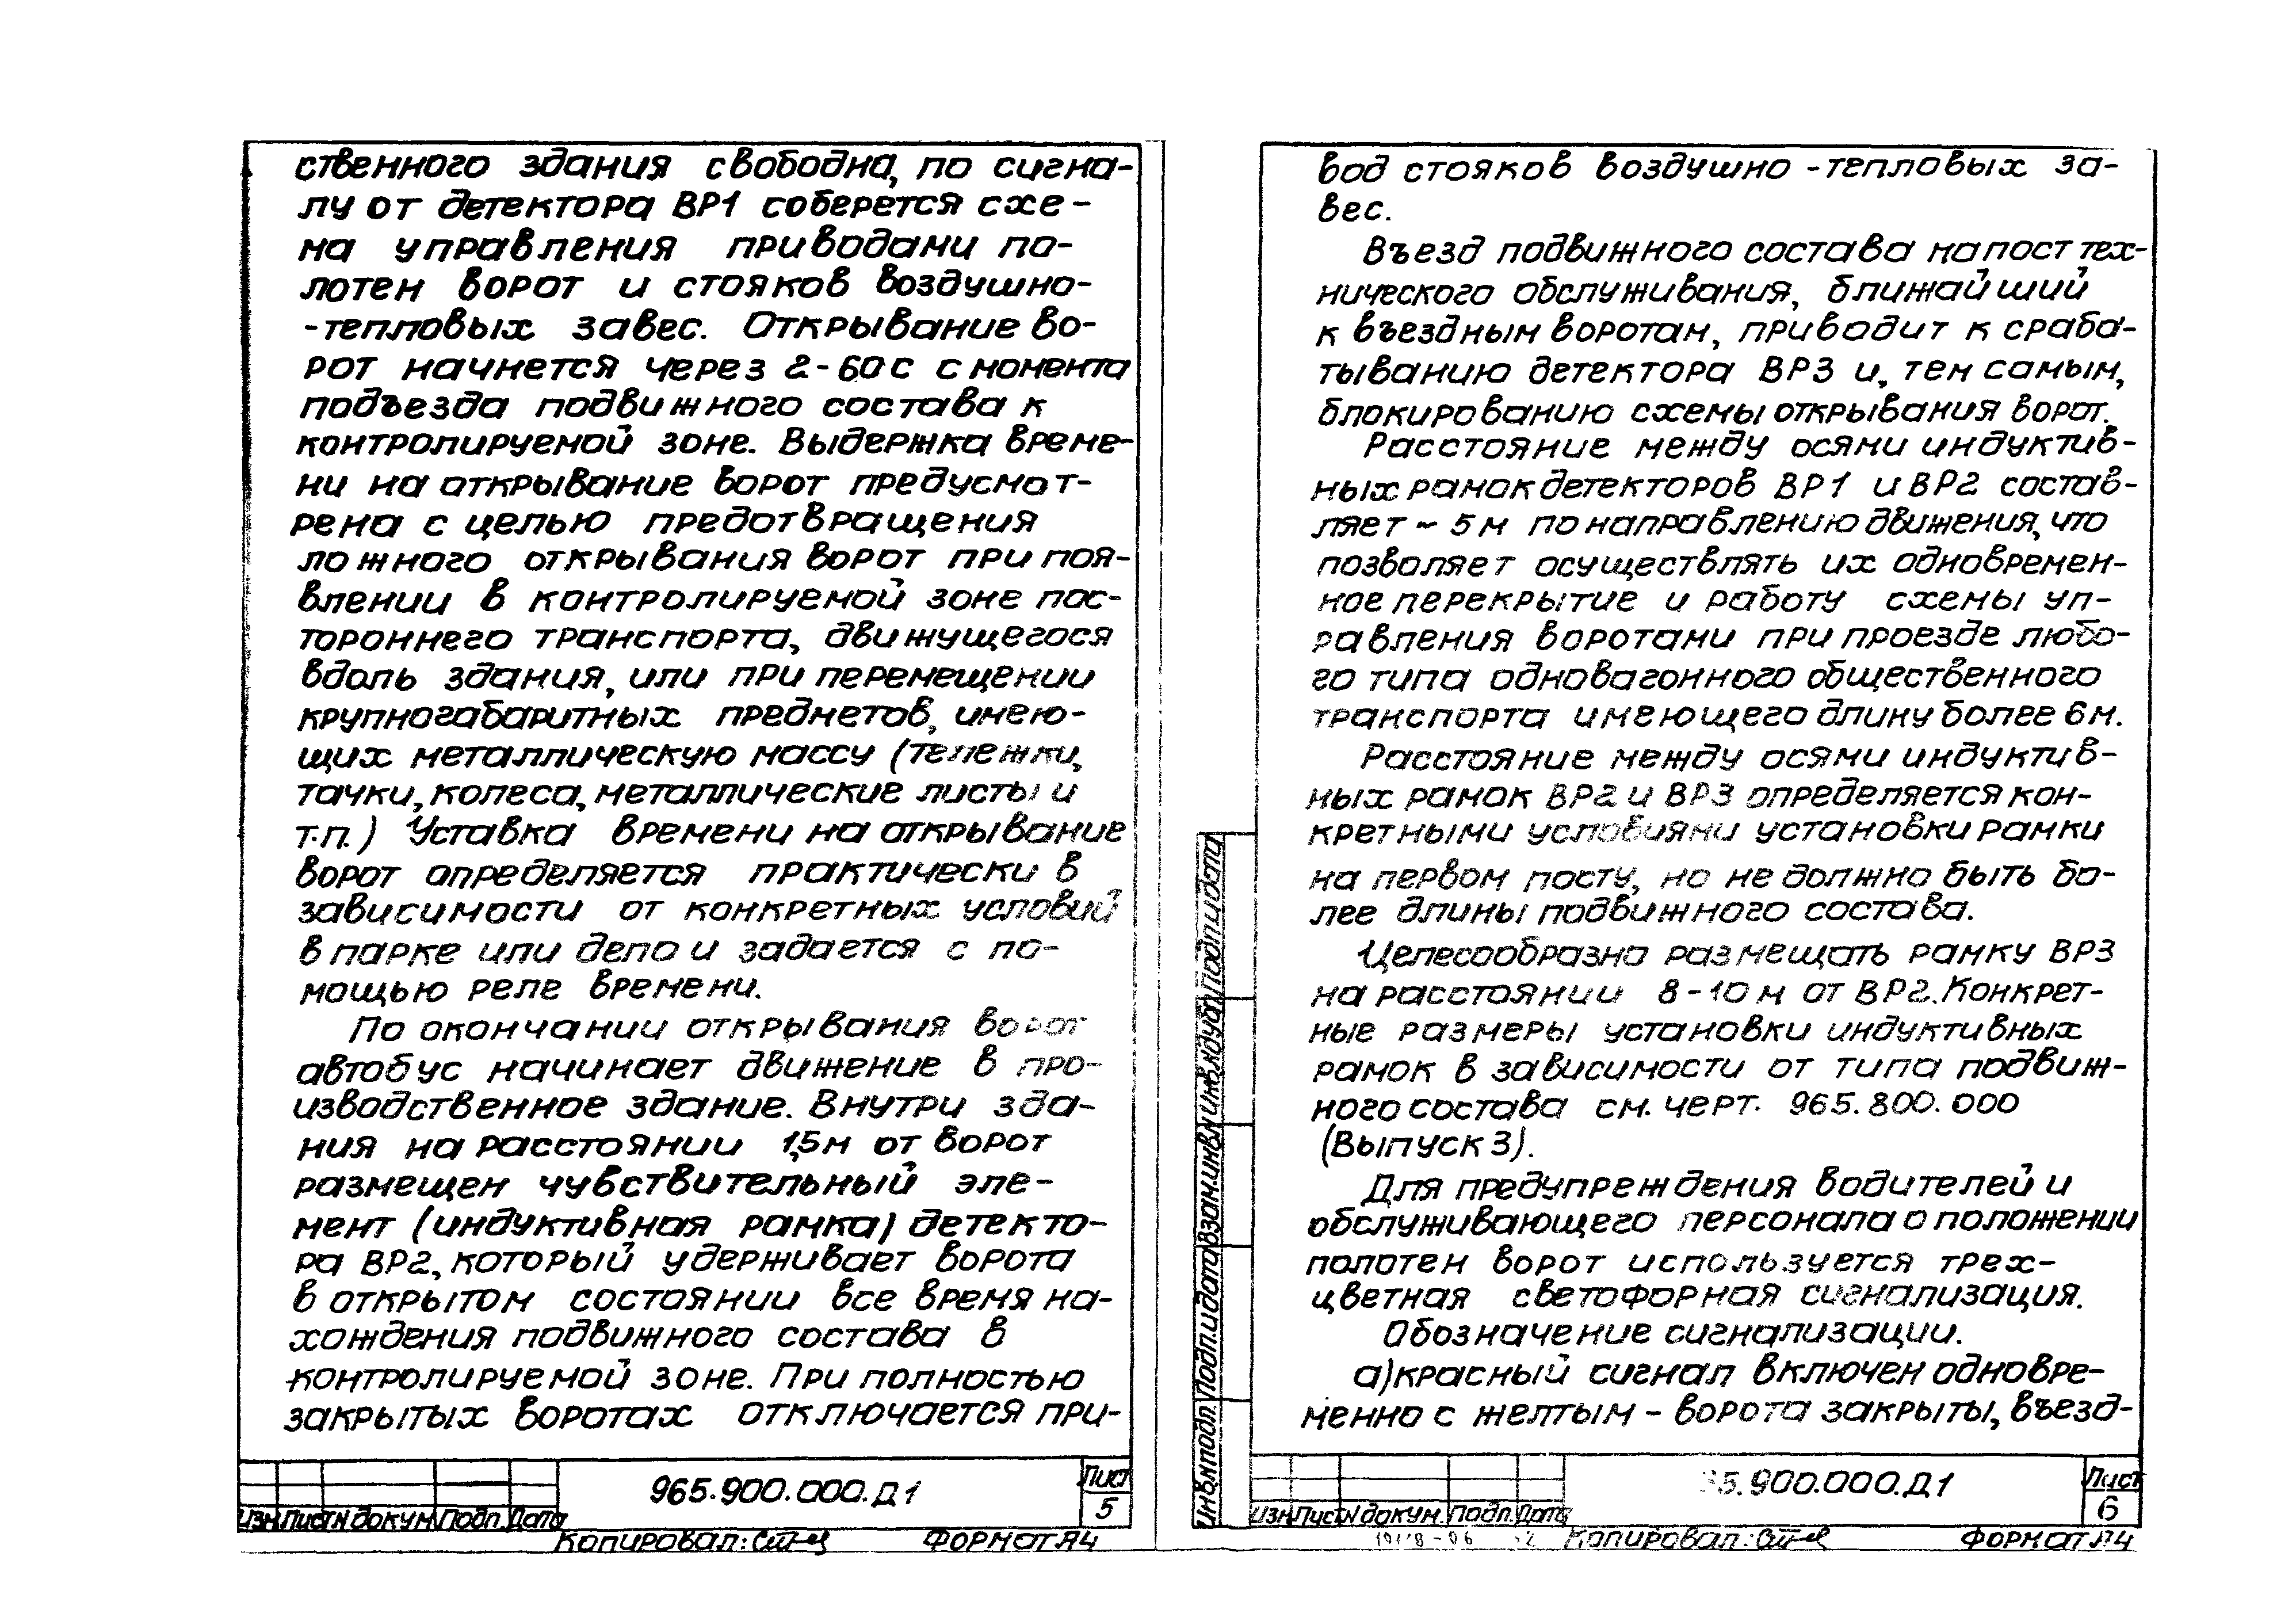 ственного здания свободна, по сигна-
лу от детектора ВР1 соберется схе-
ма управления приводами по-
лотен ворот и стояков воздушно-
-тепловых завес. Открывание во-
рот начнется через 2-60с с момента
подъезда подвижного состава к
контролируемой зоне. Выдержка време-
ни на открывание ворот предусмот-
рена с целью предотвращения
ложного открывания ворот при поя-
влении в контролируемой зоне пос-
тороннего транспорта, движущегося
вдоль здания, или при перемещении
крупногабаритных предметов, имею-
щих металлическую массу (тележки,
тачки, колеса, металлические листы и
т.п.) Уставка времени на открывание
ворот определяется практически в
зависимости от конкретных условий
в парке или депо и задается с по-
мощью реле времени.
По окончании открывания ворот
автобус начинает движение в про-
изводственное здание. Внутри зда-
ния на расстоянии 1,5м от ворот
размещен чувствительный эле-
мент (индуктивная рамка) детекто-
ра ВР2, который удерживает ворота
в открытом состоянии все время на-
хождения подвижного состава в
контролируемой зоне. При полностью
закрытых воротах отключается при-
965.900.000.Д1
Лист
5
Изм. Лист N докум. Подп. Дата
Копировал:
Формат А4
вод стояков воздушно-тепловых за-
вес.
Въезд подвижного состава на пост тех-
нического обслуживания, ближайший
к въездным воротам, приводит к сраба-
тыванию детектора ВР3 и, тем самым,
блокированию схемы открывания ворот.
Расстояние между осями индуктив-
ных рамок детекторов ВР1 и ВР2 состав-
ляет ~ 5м по направлению движения, что
позволяет осуществлять их одновремен-
ное перекрытие и работу схемы уп-
равления воротами при проезде любо-
го типа одновагонного общественного
транспорта имеющего длину более 6м.
Расстояние между осями индуктив-
ных рамок ВР2 и ВР3 определяется кон-
кретными условиями установки рамки
на первом посту, но не должно быть бо-
лее длины подвижного состава.
Целесообразно размещать рамку ВР3
на расстоянии 8-10м от ВР2. Конкрет-
ные размеры установки индуктивных
рамок в зависимости от типа подвиж-
ного состава см. черт. 965.800.000
(Выпуск 3).
Для предупреждения водителей и
обслуживающего персонала о положении
полотен ворот используется трех-
цветная светофорная сигнализация.
Обозначение сигнализации.
а) красный сигнал включен одновре-
менно с желтым - ворота закрыты, въезд-
Инв.N подл. Подп. и дата Взам. инв.N Инв.N дубл. Подп. и дата
5.900.000.Д1
Лист
6
Изм. Лист N докум. Подп. Дата
Копировал:
Формат А4